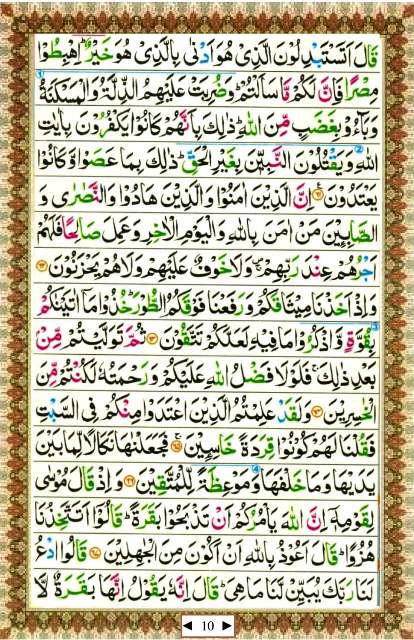 قَالَ اَتَسْتَبْدِلُوْنَ الَّذِیْ هُوَ اَدْنٰی بِالَّذِیْ هُوَ خَیْرٌ ؕ اِهْبِطُوْا
مِصْرًا فَاِنَّ لَكُمْ مَّا سَاَلْتُمْ ؕ وَ ضُرِبَتْ عَلَیْهِمُ الذِّلَّةُ وَ الْمَسْكَنَةُ
وَ بَآءُوْ بِغَضَبٍ مِّنَ اللّٰهِ ؕ ذٰلِكَ بِاَنَّهُمْ كَانُوْا یَكْفُرُوْنَ بِاٰیٰتِ
اللّٰهِ وَ یَقْتُلُوْنَ النَّبِیّٖنَ بِغَیْرِ الْحَقِّ ؕ ذٰلِكَ بِمَا عَصَوْا وَّ كَانُوْا
یَعْتَدُوْنَ ﴿۶۱﴾ اِنَّ الَّذِیْنَ اٰمَنُوْا وَ الَّذِیْنَ هَادُوْا وَ النَّصٰرٰی وَ
الصّٰبِـِٕیْنَ مَنْ اٰمَنَ بِاللّٰهِ وَ الْیَوْمِ الْاٰخِرِ وَ عَمِلَ صَالِحًا فَلَهُمْ
اَجْرُهُمْ عِنْدَ رَبِّهِمْ ۪ۚ وَ لَا خَوْفٌ عَلَیْهِمْ وَ لَا هُمْ یَحْزَنُوْنَ ﴿۶۲﴾
وَ اِذْ اَخَذْنَا مِیْثَاقَكُمْ وَ رَفَعْنَا فَوْقَكُمُ الطُّوْرَ ؕ خُذُوْا مَاۤ اٰتَیْنٰكُمْ
بِقُوَّةٍ وَّ اذْكُرُوْا مَا فِیْهِ لَعَلَّكُمْ تَتَّقُوْنَ ﴿۶۳﴾ ثُمَّ تَوَلَّیْتُمْ مِّنْۢ
بَعْدِ ذٰلِكَ ۚ فَلَوْ لَا فَضْلُ اللّٰهِ عَلَیْكُمْ وَ رَحْمَتُهٗ لَكُنْتُمْ مِّنَ
الْخٰسِرِیْنَ ﴿۶۴﴾ وَ لَقَدْ عَلِمْتُمُ الَّذِیْنَ اعْتَدَوْا مِنْكُمْ فِی السَّبْتِ
فَقُلْنَا لَهُمْ كُوْنُوْا قِرَدَةً خٰسِـِٕیْنَ ﴿۶۵﴾ فَجَعَلْنٰهَا نَكَالًا لِّمَا بَیْنَ
یَدَیْهَا وَ مَا خَلْفَهَا وَ مَوْعِظَةً لِّلْمُتَّقِیْنَ ﴿۶۶﴾ وَ اِذْ قَالَ مُوْسٰی
لِقَوْمِهٖۤ اِنَّ اللّٰهَ یَاْمُرُكُمْ اَنْ تَذْبَحُوْا بَقَرَةً ؕ قَالُوْۤا اَتَتَّخِذُنَا
هُزُوًا ؕ قَالَ اَعُوْذُ بِاللّٰهِ اَنْ اَكُوْنَ مِنَ الْجٰهِلِیْنَ ﴿۶۷﴾ قَالُوا ادْعُ
لَنَا رَبَّكَ یُبَیِّنْ لَّنَا مَا هِیَ ؕ قَالَ اِنَّهٗ یَقُوْلُ اِنَّهَا بَقَرَةٌ لَّا
◄ 10 ►